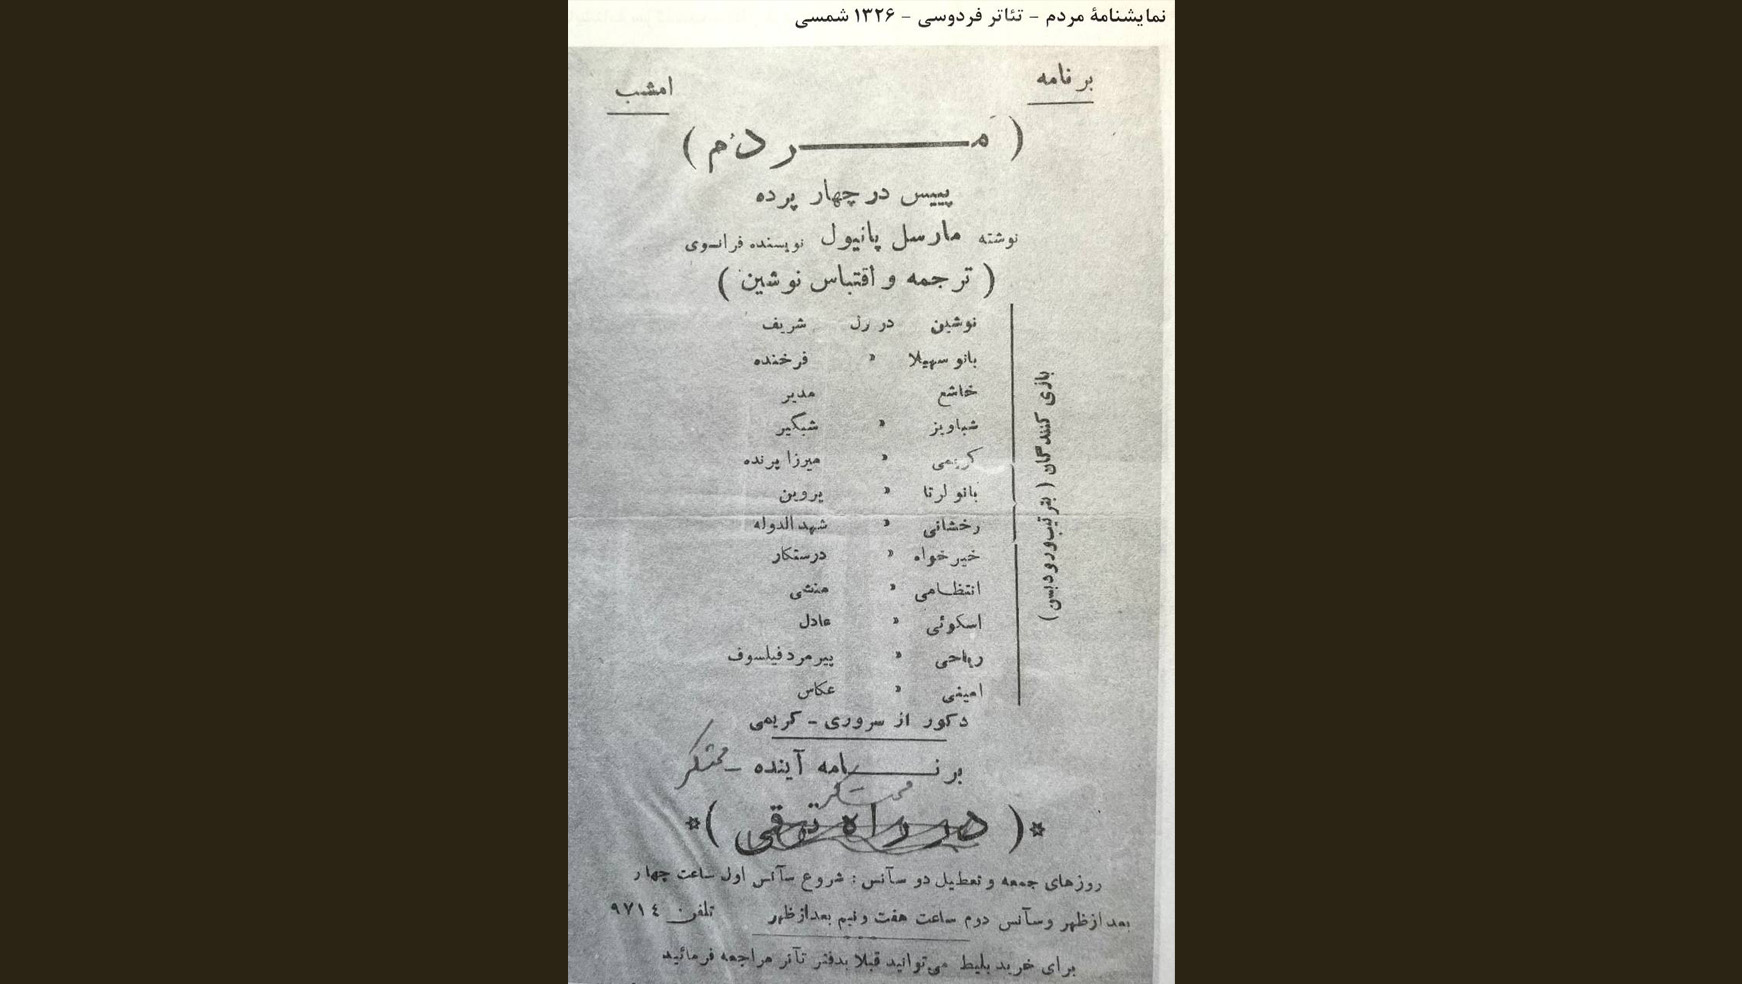 نمایشنامهٔ مردم - تئاتر فردوسی - ۱۳۲۶ شمسی
برنامه امشب
( مَـردُم )
پییس در چهار پرده
نوشته مارسل پانیول نویسنده فرانسوی
( ترجمه و اقتباس نوشین )
بازی کنندگان ( بترتیب ورود بسن )
نوشین در رل شریف
بانو سهیلا » فرخنده
خاشع مدیر
شباویز » شبگیر
کریمی » میرزا پرنده
بانو لرتا » پروین
رخشانی » شهدالدوله
خیرخواه » درستکار
انتظامی » منشی
اسکوئی » عادل
ریاحی » پیرمرد فیلسوف
امینی » عکاس
دکور از سروری - کریمی
برنامه آینده - محتکر
محتکر
*( در راه ترقی )*
روزهای جمعه و تعطیل دو سآنس : شروع سآنس اول ساعت چهار
بعد از ظهر و سآنس دوم ساعت هفت و نیم بعد از ظهر تلفن ۹۷۱۴
برای خرید بلیط می‌توانید قبلا بدفتر تآتر مراجعه فرمائید